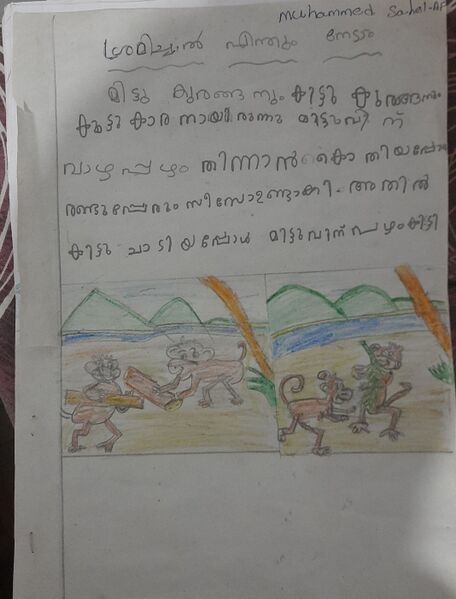 Muhammed Sahal-AP
ശ്രമിച്ചാൽ എന്തും നേടാം
മിട്ടു കുരങ്ങനും കിട്ടു കുരങ്ങനും
കൂട്ടുകാരനായിരുന്നു മിട്ടുവിന്
വാഴപ്പഴം തിന്നാൻ കൊതിയപ്പോ
രണ്ടുപ്പേരും സീസോഉണ്ടാക്കി. അതിൽ
കിട്ടു ചാടിയപ്പോൾ മിട്ടുവിന് പഴംകിട്ടി